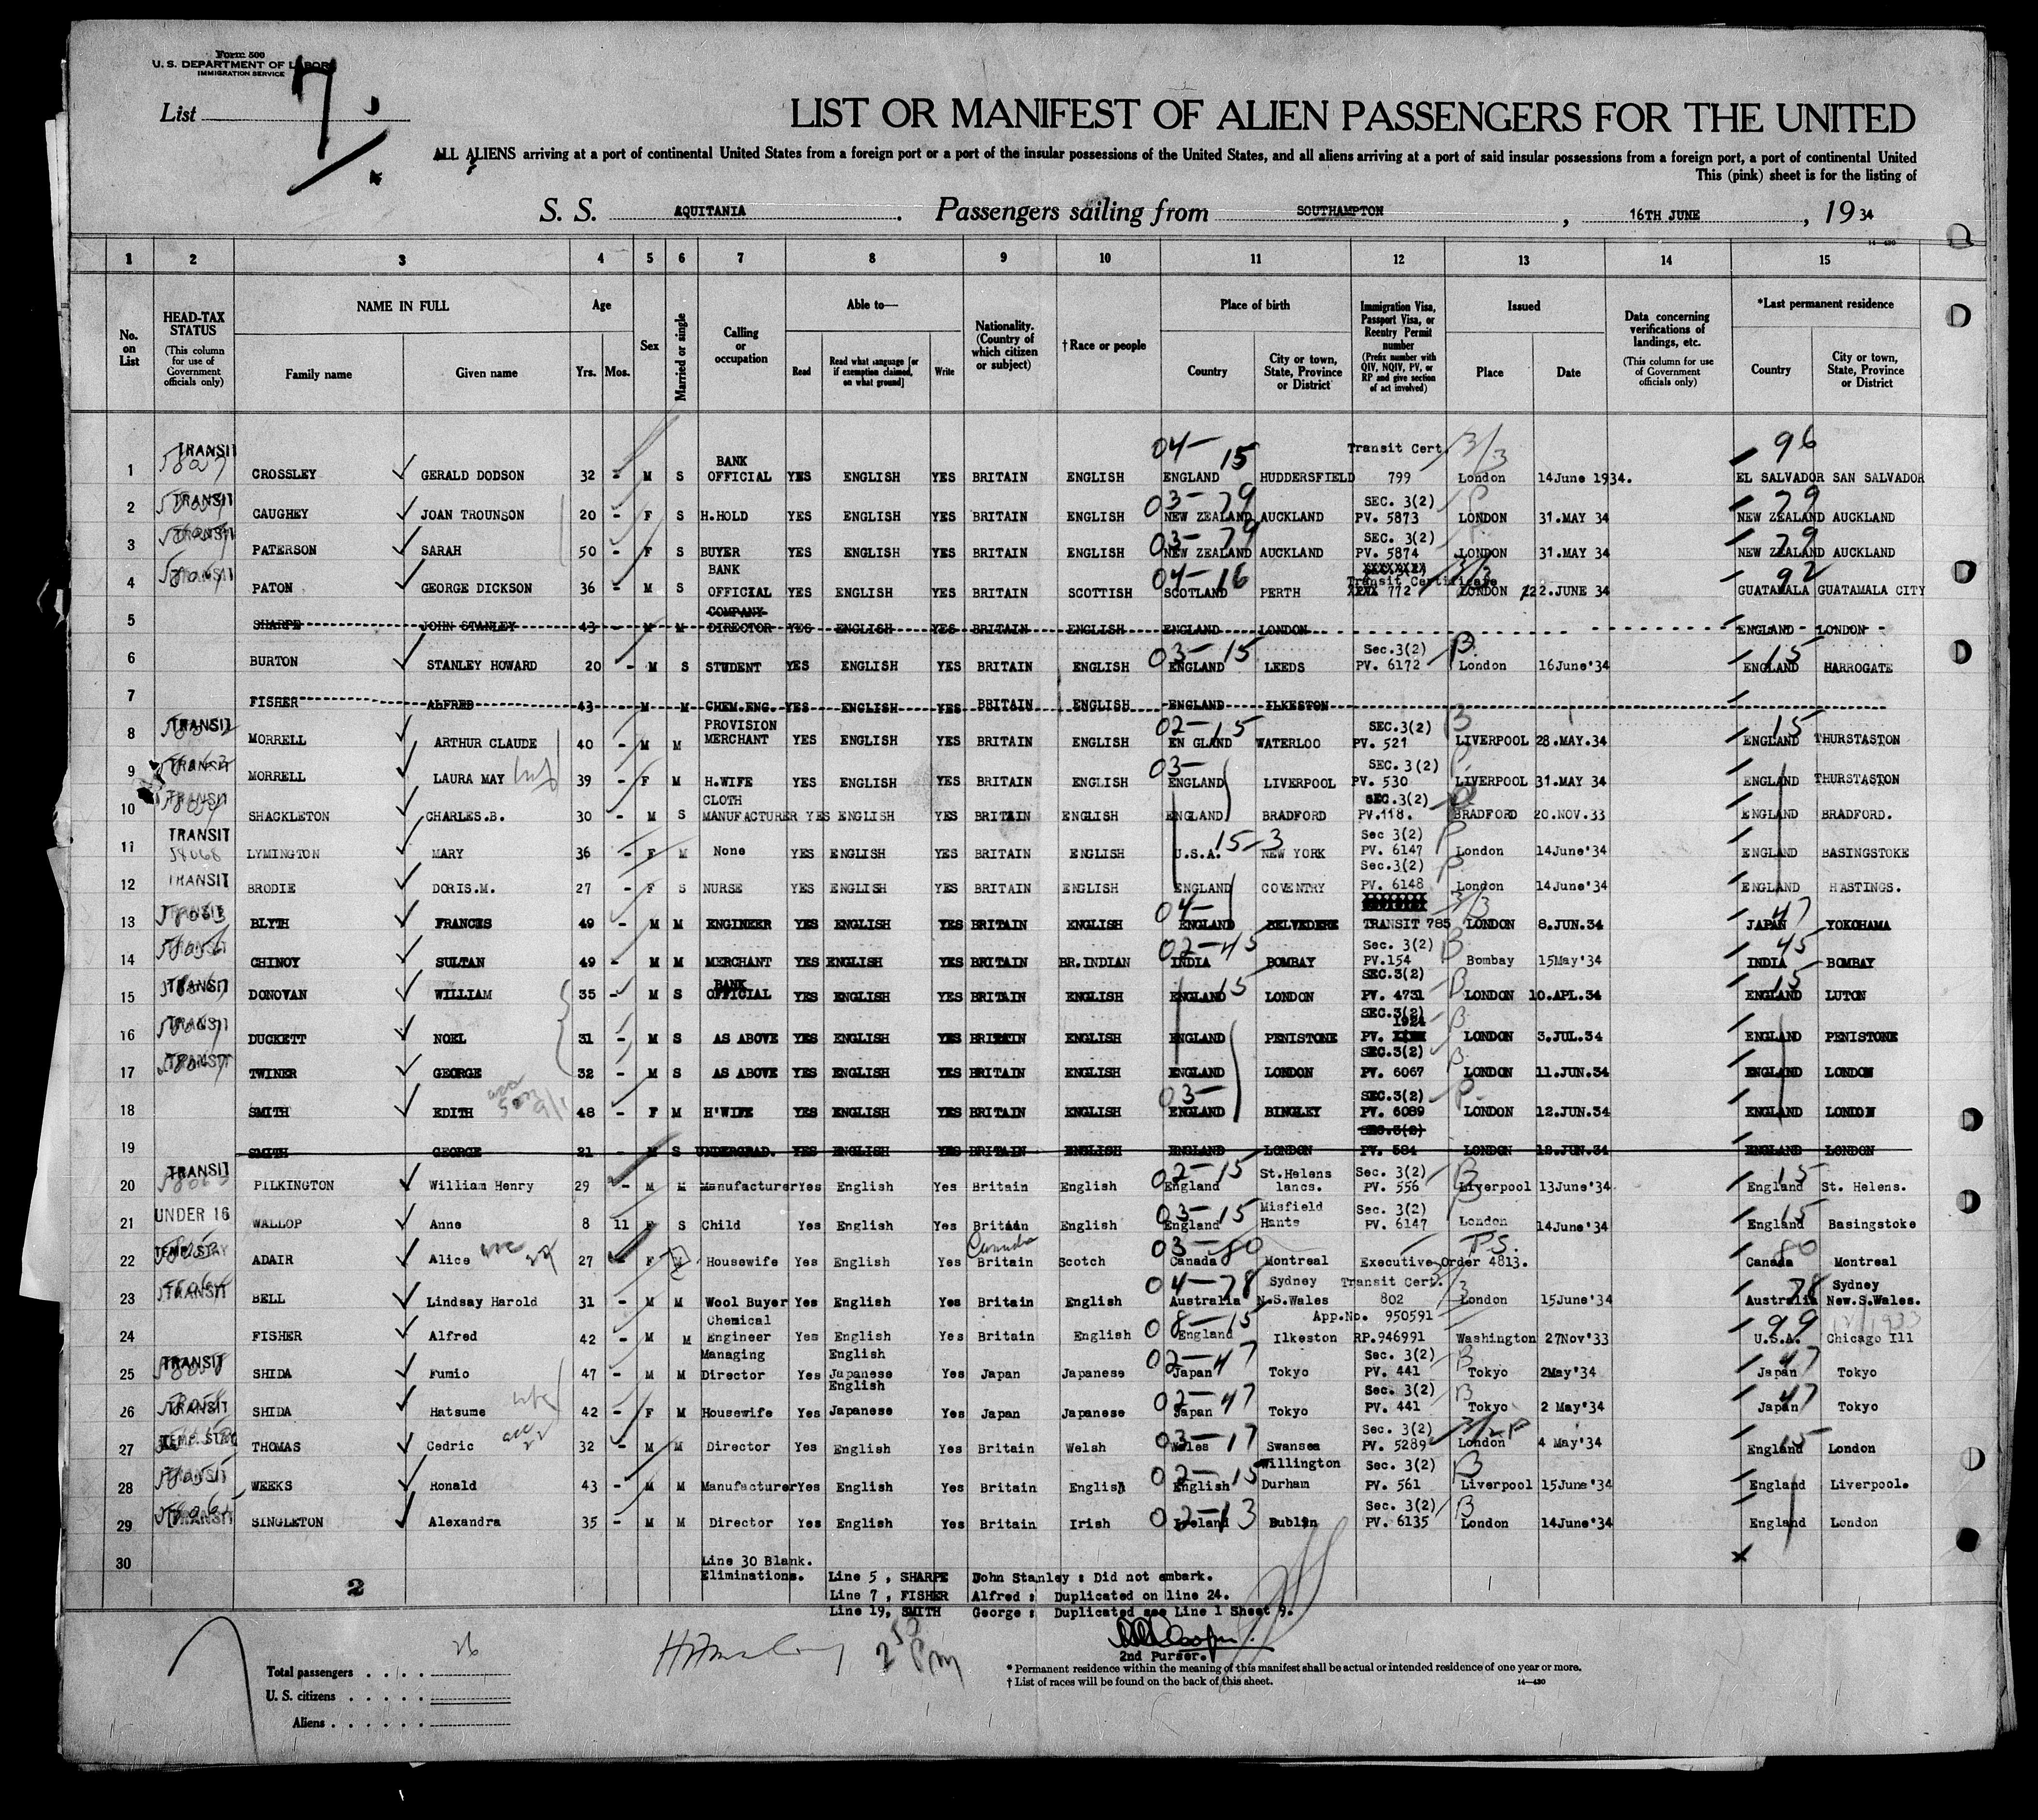 Form 500
U. S. DEPARTMENT OF LABOR
IMMIGRATION SERVICE
List 7
LIST OR MANIFEST OF ALIEN PASSENGERS FOR THE UNITED
ALL ALIENS arriving at a port of continental United States from a foreign port or a port of the insular possessions of the United States, and all aliens arriving at a port of said insular possessions from a foreign port, a port of continental United
This (pink) sheet is for the listing of
S. S. AQUITANIA. Passengers sailing from SOUTHAMPTON, 16TH JUNE, 1934
14—430
1 2 3 4 5 6 7 8 9 10 11 12 13 14 15
No. on List
HEAD-TAX STATUS (This column for use of Government officials only)
NAME IN FULL Family name Given name
Age Yrs. Mos.
Sex
Married or single
Calling or occupation
Able to— Read Read what language [or if exemption claimed, on what ground] Write
Nationality. (Country of which citizen or subject)
†Race or people
Place of birth Country City or town, State, Province or District
Immigration Visa, Passport Visa, or Reentry Permit number (Prefix number with QIV, NQIV, PV, or RP and give section of act involved)
Issued Place Date
Data concerning verifications of landings, etc. (This column for use of Government officials only)
*Last permanent residence Country City or town, State, Province or District
TRANSIT BANK 04- 15 Transit Cert. 3/3 96
1 CROSSLEY GERALD DODSON 32 - M S OFFICIAL YES ENGLISH YES BRITAIN ENGLISH ENGLAND HUDDERSFIELD 799 London 14June 1934. EL SALVADOR SAN SALVADOR
TRANSIT 03- 79 SEC. 3(2) 79
2 CAUGHEY JOAN TROUNSON 20 - F S H.HOLD YES ENGLISH YES BRITAIN ENGLISH NEW ZEALAND AUCKLAND PV. 5873 LONDON 31.MAY 34 NEW ZEALAND AUCKLAND
TRANSIT 03- 79 SEC. 3(2) 79
3 PATERSON SARAH 50 - F S BUYER YES ENGLISH YES BRITAIN ENGLISH NEW ZEALAND AUCKLAND PV. 5874 LONDON 31.MAY 34 NEW ZEALAND AUCKLAND
TRANSIT BANK 04-16 Transit Certificate 3/3 92
4 PATON GEORGE DICKSON 36 - M S OFFICIAL YES ENGLISH YES BRITAIN SCOTTISH SCOTLAND PERTH 772 LONDON 2.JUNE 34 GUATAMALA GUATAMALA CITY
COMPANY
5 SHARPE JOHN STANLEY 43 - M M DIRECTOR YES ENGLISH YES BRITAIN ENGLISH ENGLAND LONDON ENGLAND LONDON
03- 15 Sec.3(2) 15
6 BURTON STANLEY HOWARD 20 - M S STUDENT YES ENGLISH YES BRITAIN ENGLISH ENGLAND LEEDS PV. 6172 London 16June'34 ENGLAND HARROGATE
7 FISHER ALFRED 43 - M M CHEM.ENG. YES ENGLISH YES BRITAIN ENGLISH ENGLAND ILKESTON
TRANSIT PROVISION 02-15 SEC.3(2) 15
8 MORRELL ARTHUR CLAUDE 40 - M M MERCHANT YES ENGLISH YES BRITAIN ENGLISH EN GLAND WATERLOO PV. 521 LIVERPOOL 28.MAY.34 ENGLAND THURSTASTON
TRANSIT 03- SEC. 3(2)
9 MORRELL LAURA MAY 39 - F M H.WIFE YES ENGLISH YES BRITAIN ENGLISH ENGLAND LIVERPOOL PV. 530 LIVERPOOL 31.MAY 34 ENGLAND THURSTASTON
TRANSIT CLOTH SEC.3(2)
10 SHACKLETON CHARLES.B. 30 - M S MANUFACTURER YES ENGLISH YES BRITAIN ENGLISH ENGLAND BRADFORD PV.118. BRADFORD 20.NOV.33 ENGLAND BRADFORD.
TRANSIT 58068 15-3 Sec 3(2)
11 LYMINGTON MARY 36 - F M None YES ENGLISH YES BRITAIN ENGLISH U.S.A. NEW YORK PV. 6147 London 14June'34 ENGLAND BASINGSTOKE
TRANSIT Sec.3(2)
12 BRODIE DORIS.M. 27 - F S NURSE YES ENGLISH YES BRITAIN ENGLISH ENGLAND COVENTRY PV. 6148 London 14June'34 ENGLAND HASTINGS.
TRANSIT 04- 3/3 47
13 BLYTH FRANCIS 49 - M M ENGINEER YES ENGLISH YES BRITAIN ENGLISH ENGLAND BELVEDERE TRANSIT 785 LONDON 8.JUN.34 JAPAN YOKOHAMA
TRANSIT 02-45 Sec. 3(2) 45
14 CHINOY SULTAN 49 - M M MERCHANT YES ENGLISH YES BRITAIN BR.INDIAN INDIA BOMBAY PV.154 Bombay 15May'34 INDIA BOMBAY
TRANSIT BANK 15 SEC.3(2) 15
15 DONOVAN WILLIAM 35 - M S OFFICIAL YES ENGLISH YES BRITAIN ENGLISH ENGLAND LONDON PV. 4731 LONDON 10.APL.34 ENGLAND LUTON
TRANSIT SEC.3(2) 1924
16 DUCKETT NOEL 31 - M S AS ABOVE YES ENGLISH YES BRITAIN ENGLISH ENGLAND PENISTONE PV. LONDON 3.JUL.34 ENGLAND PENISTONE
TRANSIT SEC.3(2)
17 TWINER GEORGE 32 - M S AS ABOVE YES ENGLISH YES BRITAIN ENGLISH ENGLAND LONDON PV. 6067 LONDON 11.JUN.34 ENGLAND LONDON
03- SEC.3(2)
18 SMITH EDITH 48 - F M H'WIFE YES ENGLISH YES BRITAIN ENGLISH ENGLAND BINGLEY PV. 6089 LONDON 12.JUN.34 ENGLAND LONDON
SEC.3(2)
19 SMITH GEORGE 21 - M S UNDERGRAD. YES ENGLISH YES BRITAIN ENGLISH ENGLAND LONDON PV. 584 LONDON 12.JUN.34 ENGLAND LONDON
TRANSIT 02-15 St.Helens Sec. 3(2) 15
20 PILKINGTON William Henry 29 - M M Manufacturer Yes English Yes Britain English England lancs. PV. 556 Liverpool 13June'34 England St. Helens.
UNDER 16 03-15 Misfield Sec. 3(2) 15
21 WALLOP Anne 8 11 F S Child Yes English Yes Britain English England Hants PV. 6147 London 14June'34 England Basingstoke
TEMP. STAY Canada 03-80 P.S. 80
22 ADAIR Alice 27 - F M Housewife Yes English Yes Britain Scotch Canada Montreal Executive Order 4813. Canada Montreal
TRANSIT 04-78 Sydney Transit Cert. 78 Sydney
23 BELL Lindsay Harold 31 - M M Wool Buyer Yes English Yes Britain English Australia N.S.Wales 802 London 15June'34 Australia New.S.Wales.
Chemical 08-15 App.No. 950591 99
24 FISHER Alfred 42 - M M Engineer Yes English Yes Britain English England Ilkeston RP.946991 Washington 27Nov'33 U.S.A. Chicago Ill
TRANSIT Managing English 02-47 Sec. 3(2) 47
25 SHIDA Fumio 47 - M M Director Yes Japanese Yes Japan Japanese Japan Tokyo PV. 441 Tokyo 2May'34 Japan Tokyo
TRANSIT English 02-47 Sec. 3(2) 47
26 SHIDA Hatsume 42 - F M Housewife Yes Japanese Yes Japan Japanese Japan Tokyo PV. 441 Tokyo 2 May'34 Japan Tokyo
TEMP. STAY 03-17 Sec. 3(2) 15
27 THOMAS Cedric 32 - M M Director Yes English Yes Britain Welsh Wales Swansea PV. 5289 London 4 May'34 England London
TRANSIT 02-15 Willington Sec. 3(2)
28 WEEKS Ronald 43 - M M Manufacturer Yes English Yes Britain English English Durham PV. 561 Liverpool 15June'34 England Liverpool.
TRANSIT 02-13 Sec. 3(2)
29 SINGLETON Alexandra 35 - M M Director Yes English Yes Britain Irish Ireland Dublin PV. 6135 London 14June'34 England London
30 Line 30 Blank.
Eliminations. Line 5, SHARPE John Stanley: Did not embark.
2 Line 7, FISHER Alfred: Duplicated on line 24.
Line 19, SMITH George: Duplicated see Line 1 Sheet 9.
2 50 Pm
2nd Purser.
Total passengers . . . . 26
U. S. citizens . . . . .
Aliens . . . . . .
* Permanent residence within the meaning of this manifest shall be actual or intended residence of one year or more.
† List of races will be found on the back of this sheet. 14—430